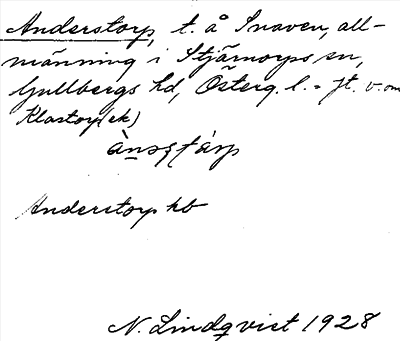 Anderstorp, t. å Snaven, all-
männing i Stjärnorps sn,
Gullbergs hd, Österg. l. = ft. v. om
Klastorp (ek)
Anderstorp hb
N. Lindqvist 1928